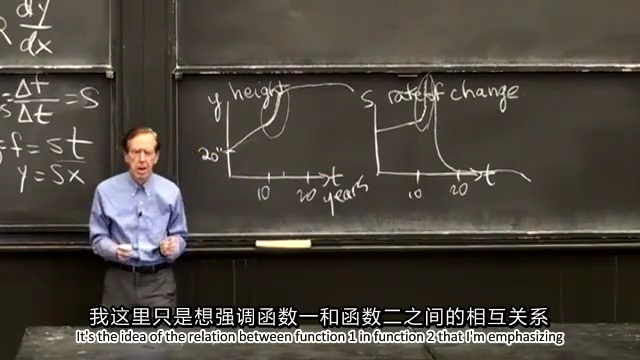 dy
dx
Δf
Δt = S
f = st
y = sx
y height
20"
10 20 t
years
s rate of change
10 20 t
我这里只是想强调函数一和函数二之间的相互关系
It's the idea of the relation between function 1 in function 2 that I'm emphasizing